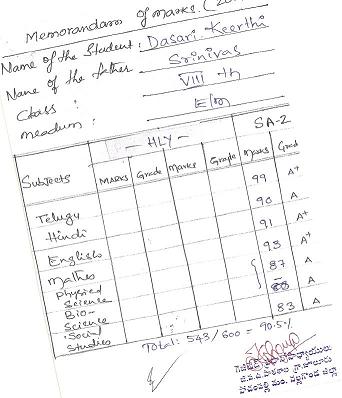 Memorandam of marks. (20
Name of the Student : Dasari. Keerthi
Name of the father : Srinivas
Class : VIII th
meadium : E/m
— HLY — SA-2
Subjects Marks Grade Marks Grade Marks Grad
Telugu 99 A+
Hindi 90 A
English 91 A+
Mathes 93 A+
Physical Science 87 A
Bio-Science A
Social Studies 83 A
Total: 543/600 = 90.5%